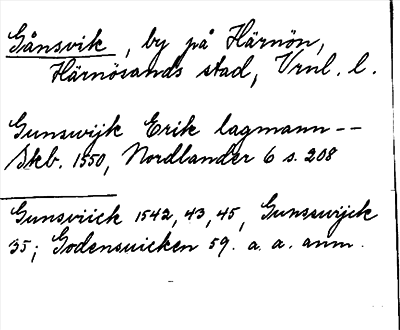 Gånsvik, by på Härnön,
Härnösands stad, Vrnl. l.
Gunswijk Erik lagmann--
Skb. 1550, Nordlander 6 s. 208
Gunsviick 1542, 43, 45, Gunsswijck
35; Godensuicken 59. a. a. anm.